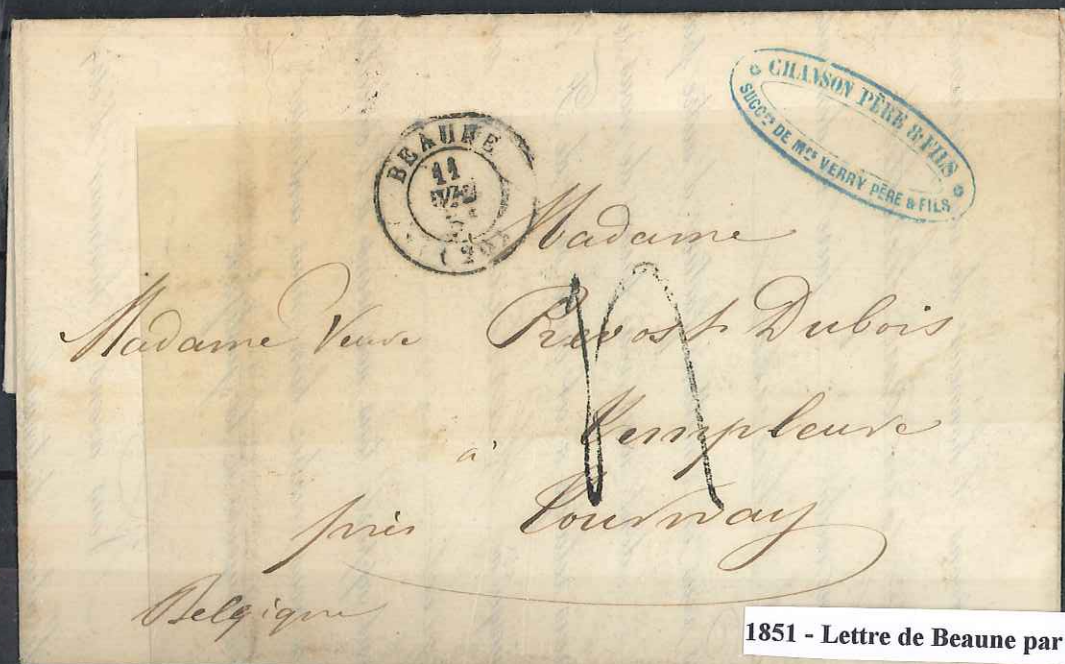 CHANSON PÈRE & FILS
SUCC^rs DE M^rs VERRY PÈRE & FILS
BEAUNE
11
(20)
Madame
Madame Veuve Prevost Dubois
à Templeuve
près Tournay
Belgique
1851 - Lettre de Beaune par